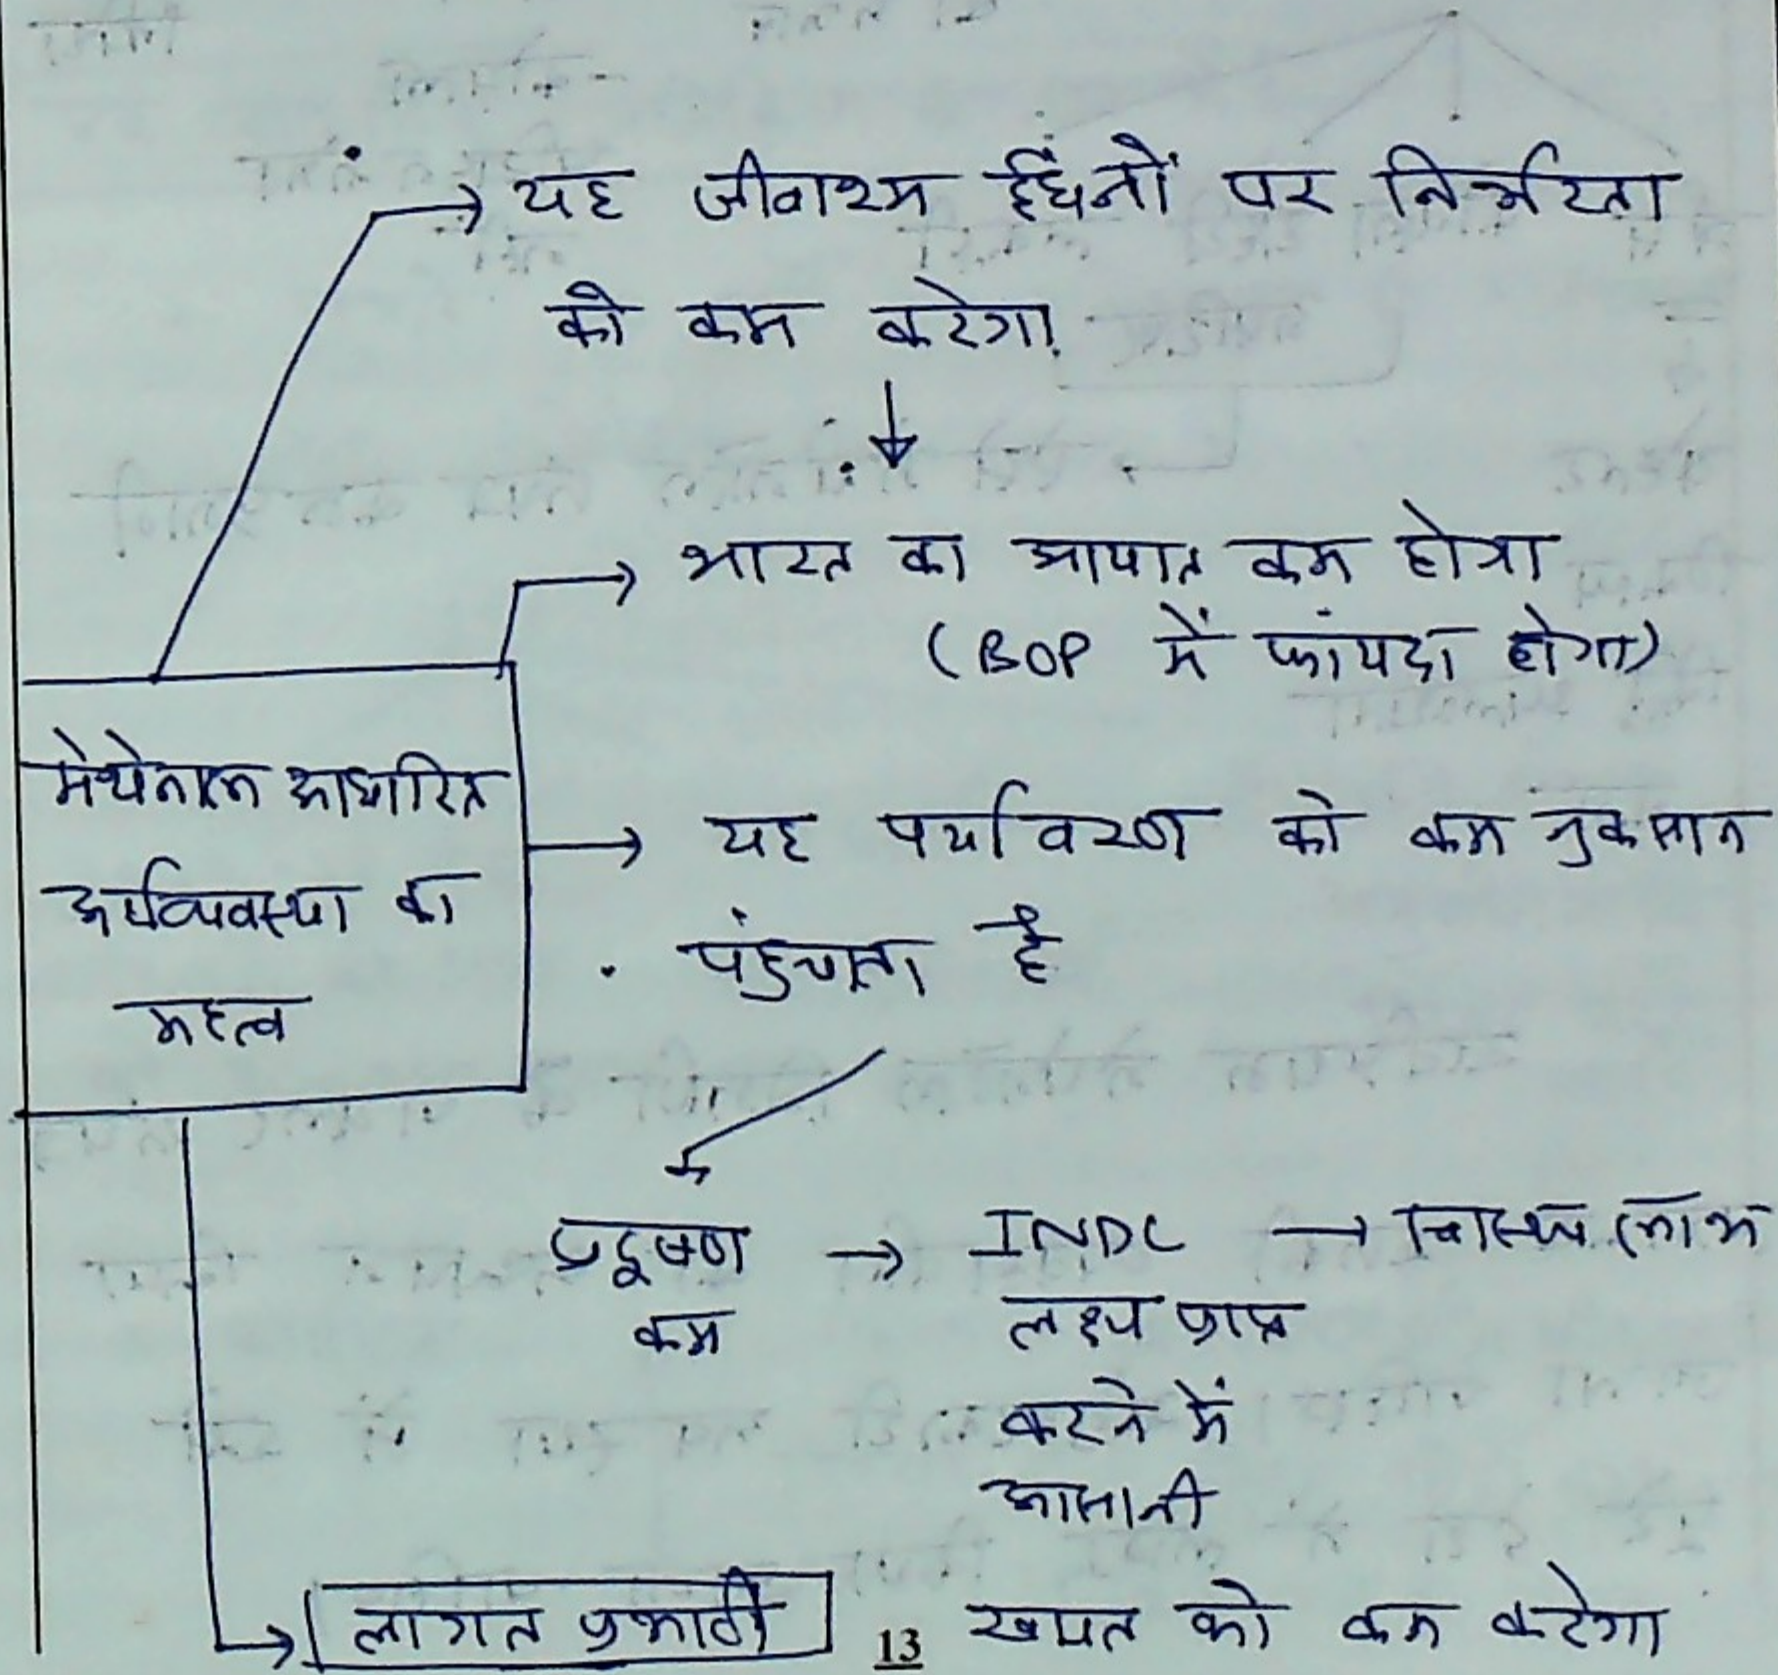 यह जीवाश्म ईंधनों पर निर्भरता
को कम करेगा
भारत का आयात कम होगा
(BOP में फायदा होगा)
मेथेनाल आधारित
अर्थव्यवस्था का
महत्व
यह पर्यावरण को कम नुकसान
पंहुचाता है
प्रदूषण → INDC → स्वास्थ्य लाभ
कम लक्ष्य प्राप्त
करने में
आसानी
लागत प्रभावी खपत को कम करेगा
13